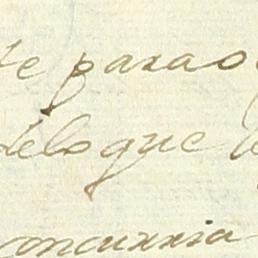 te parao
delo que le
concurria